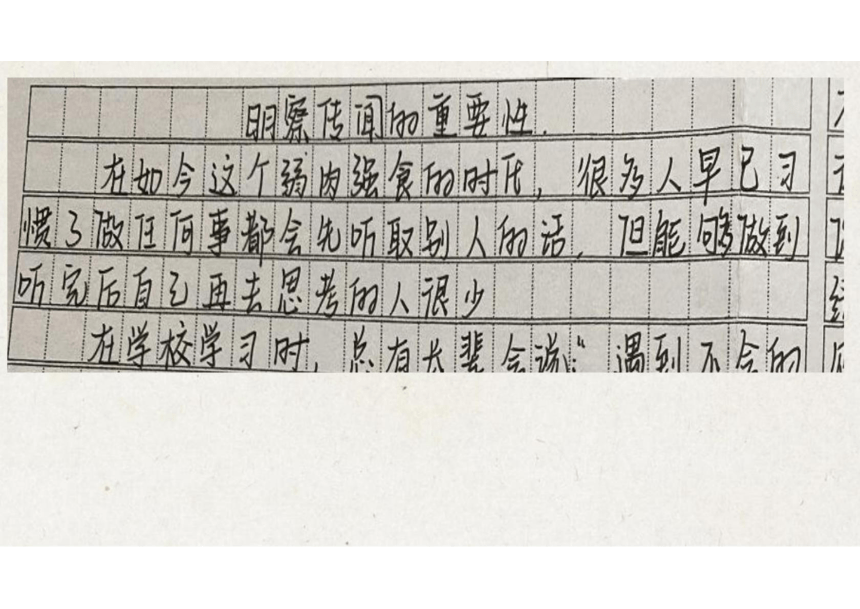 明察传闻的重要性.
在如今这个弱肉强食的时代，很多人早已习
惯了做任何事都会先听取别人的话，但能够做到
听完后自己再去思考的人很少
在学校学习时，总有长辈会说：“遇到不会的